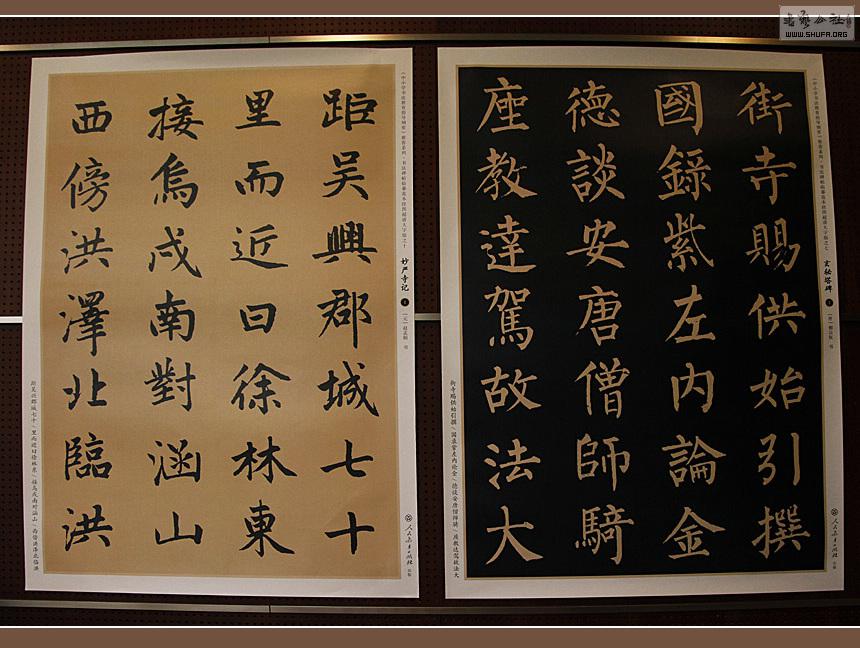 街寺賜供始引撰
國錄紫左内論金
德談安唐僧師騎
座教達駕故法大
玄秘塔碑
街寺赐供始引撰
国录紫左内论金
德谈安唐僧师骑
座教达驾故法大
人民教育出版社
距吴興郡城七十
里而近曰徐林東
接烏戍南對涵山
西傍洪澤北臨洪
妙严寺记
距吴兴郡城七十
里而近曰徐林东
接乌戍南对涵山
西傍洪泽北临洪
人民教育出版社
WWW.SHUFA.ORG